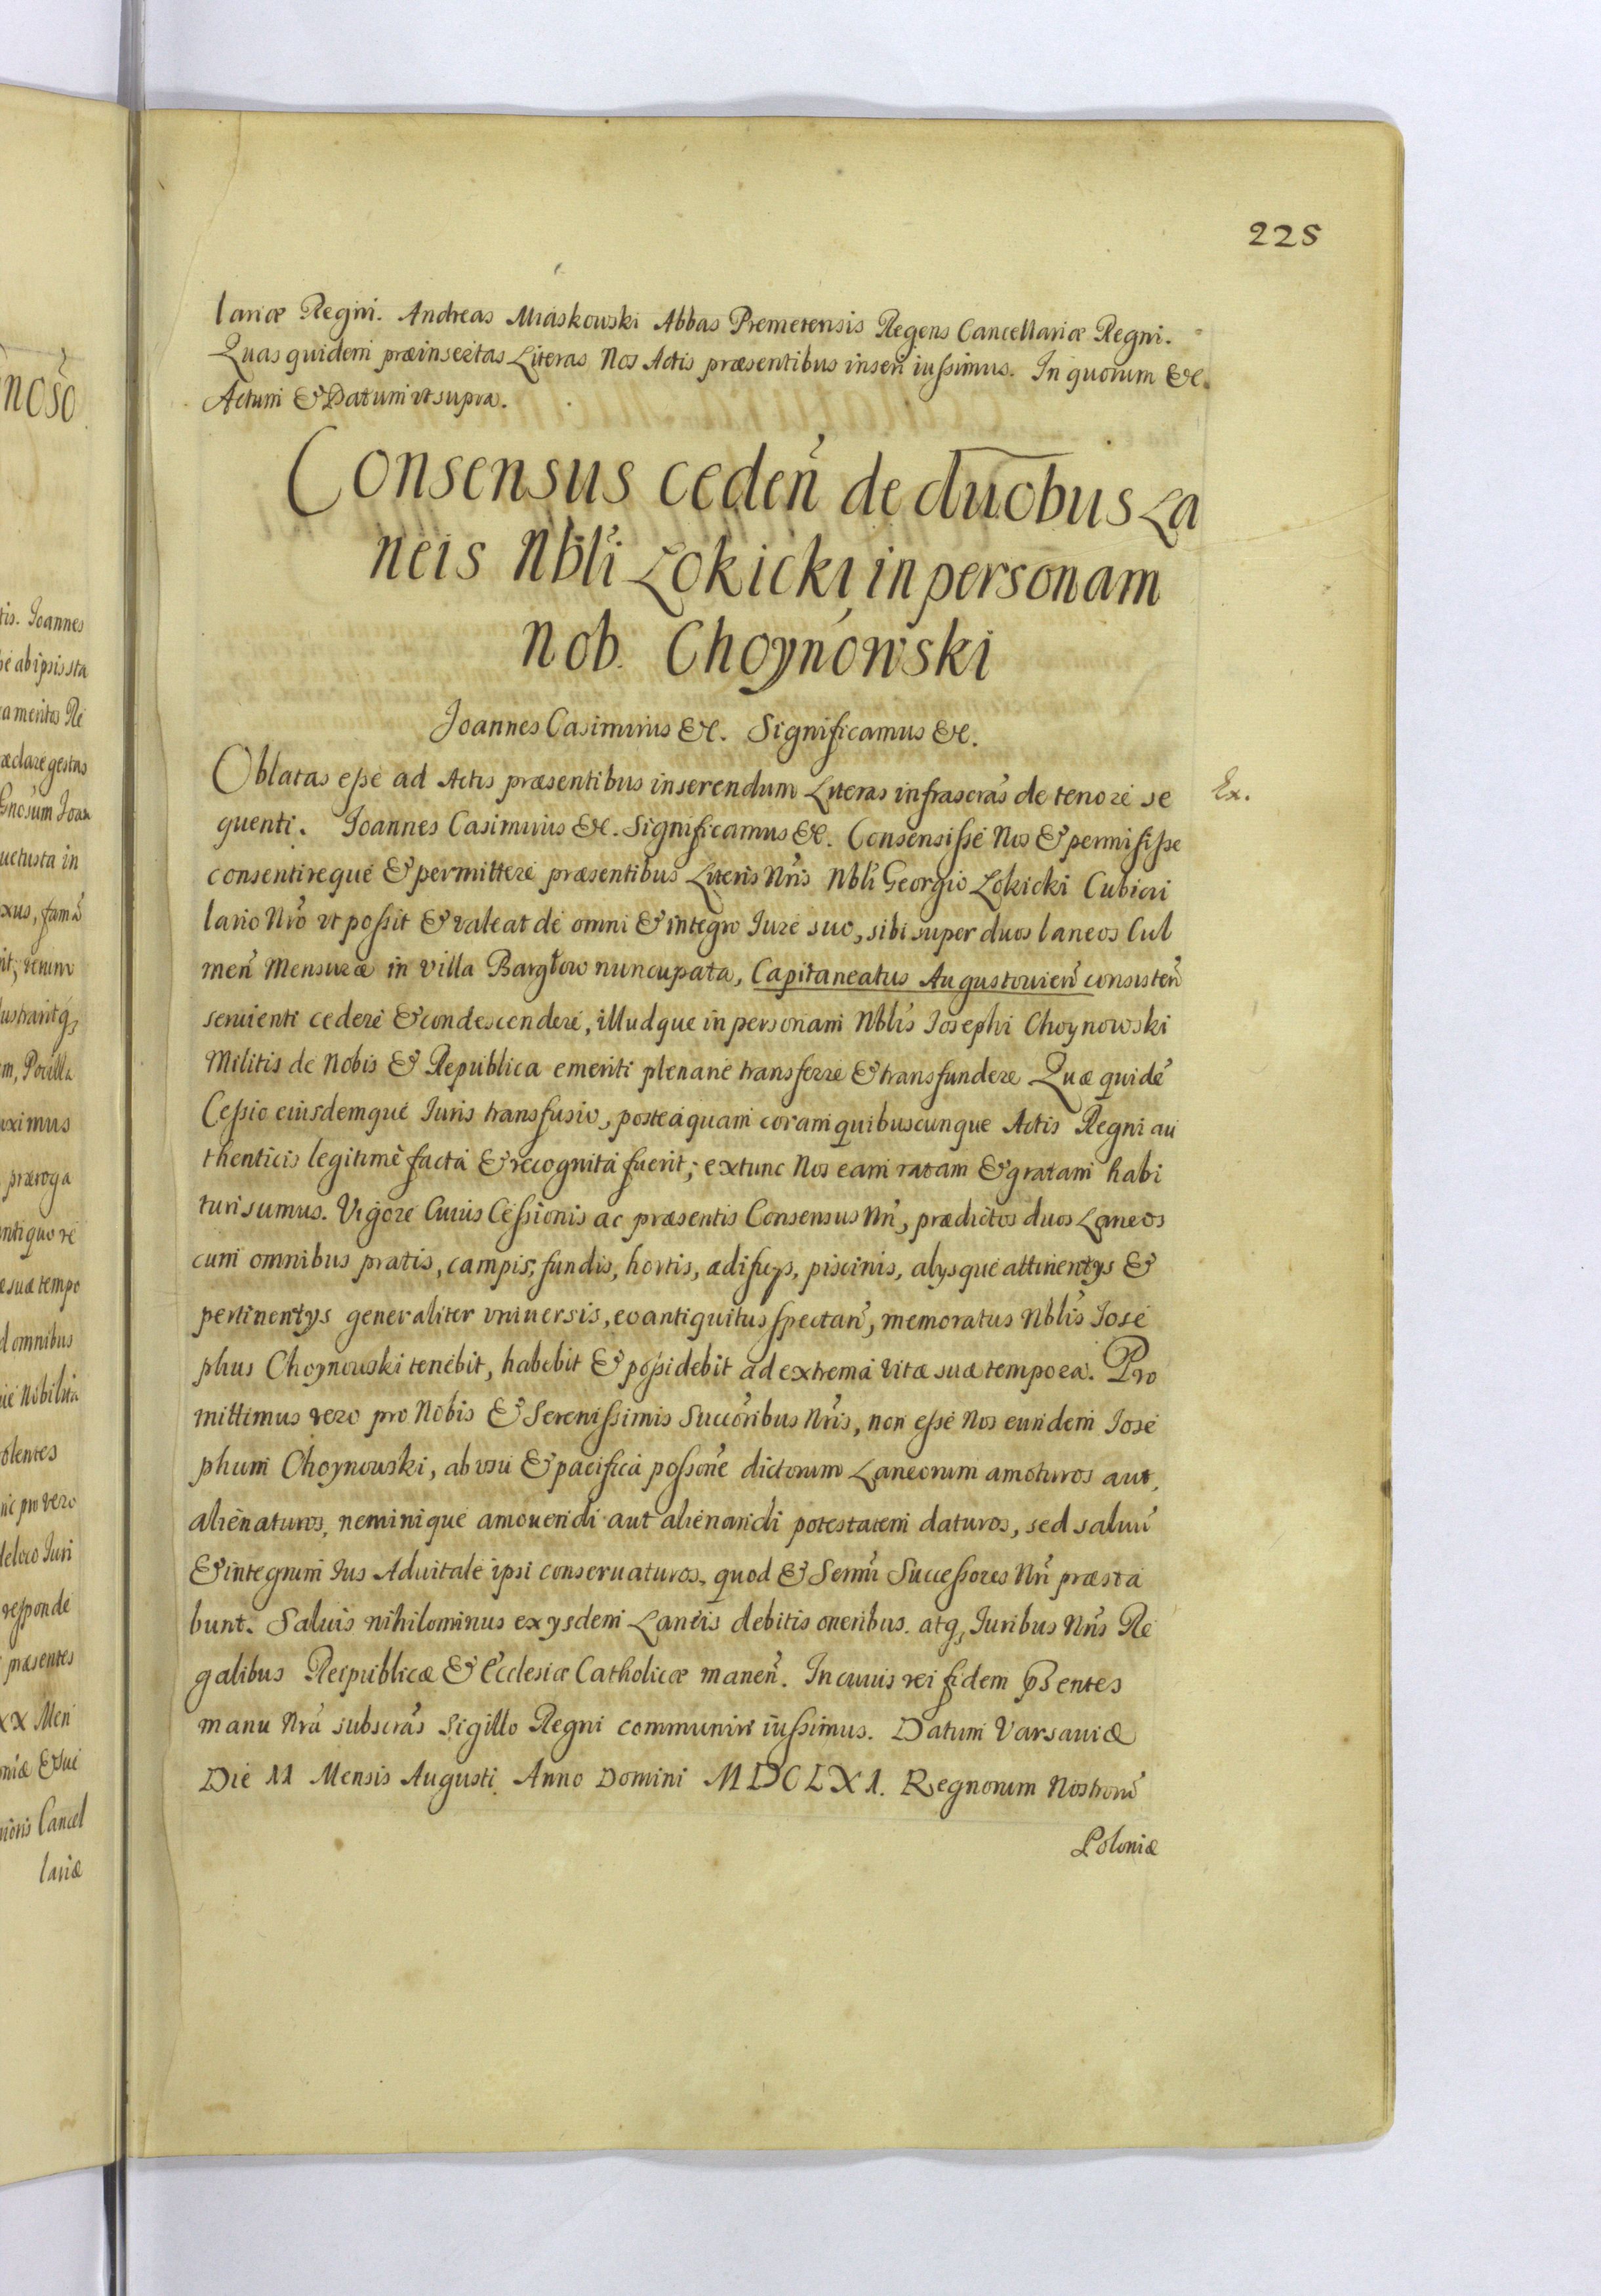 225
lariæ Regni. Andreas Miaskowski Abbas Premetensis Regens Cancellariæ Regni.
Quas quidem præinsertas Literas Nos Actis præsentibus inseri iussimus. In quorum &c.
Actum & Datum ut supra.
Consensus ceden̄ de duobus La
neis Nbl̄i Lokicki in personam
Nob. Choynowski
Joannes Casimirus &c. Significamus &c.
Oblatas esse ad Actis præsentibus inserendum Literas infrascr̄as de tenore se
Ex.
quenti. Joannes Casimirus &c. Significamus &c. Consensisse Nos & permisisse
consentireque & permittere præsentibus Literis Nr̄is Nbl̄i Georgio Lokicki Cubicu
lario Nr̄o vt possit & valeat de omni & integro Jure suo, sibi super duos laneos Cul
men̄ Mensuræ in villa Bargłow nuncupata, Capitaneatus Augustovien̄ consisten̄
seruienti cedere & condescendere, illudque in personam Nbl̄is Josephi Choynowski
Militis de Nobis & Republica emeriti plenarie transferre & transfundere Quæ quidē
Cessio eiusdemque Juris transfusio, posteaquam coram quibuscunque Actis Regni au
thenticis legitimè facta & recognita fuerit; extunc Nos eam ratam & gratam habi
turi sumus. Vigore Cuius Cessionis ac præsentis Consensus Nr̄i, prædictos duos Laneos
cum omnibus pratis, campis, fundis, hortis, ædificys, piscinis, alysque attinentys &
pertinentys generaliter vniuersis, eo antiquitus spectan̄, memoratus Nbl̄is Jose
phus Choynowski tenebit, habebit & possidebit ad extrema vitæ suæ tempora. Pro
mittimus vero pro Nobis & Serenissimis Succōribus Nr̄is, non esse Nos eundem Jose
phum Choynowski, ab vsu & pacifica possōne dictorum Laneorum amoturos aut
alienaturos, neminique amouendi aut alienandi potestatem daturos, sed saluū
& integrum Jus Aduitale ipsi conseruaturos, quod & Sermī Successores Nr̄i præsta
bunt. Saluis nihilominus ex ysdem Laneis debitis oneribus. atq, Juribus Nr̄is Re
galibus Reipublicæ & Ecclesiæ Catholicæ manen̄. In cuius rei fidem p̄sentes
manu Nr̄a subscr̄as Sigillo Regni communiri iussimus. Datum Varsauiæ
Die 11 Mensis Augusti Anno Domini MDCLX1. Regnorum Nostrorū
Poloniæ